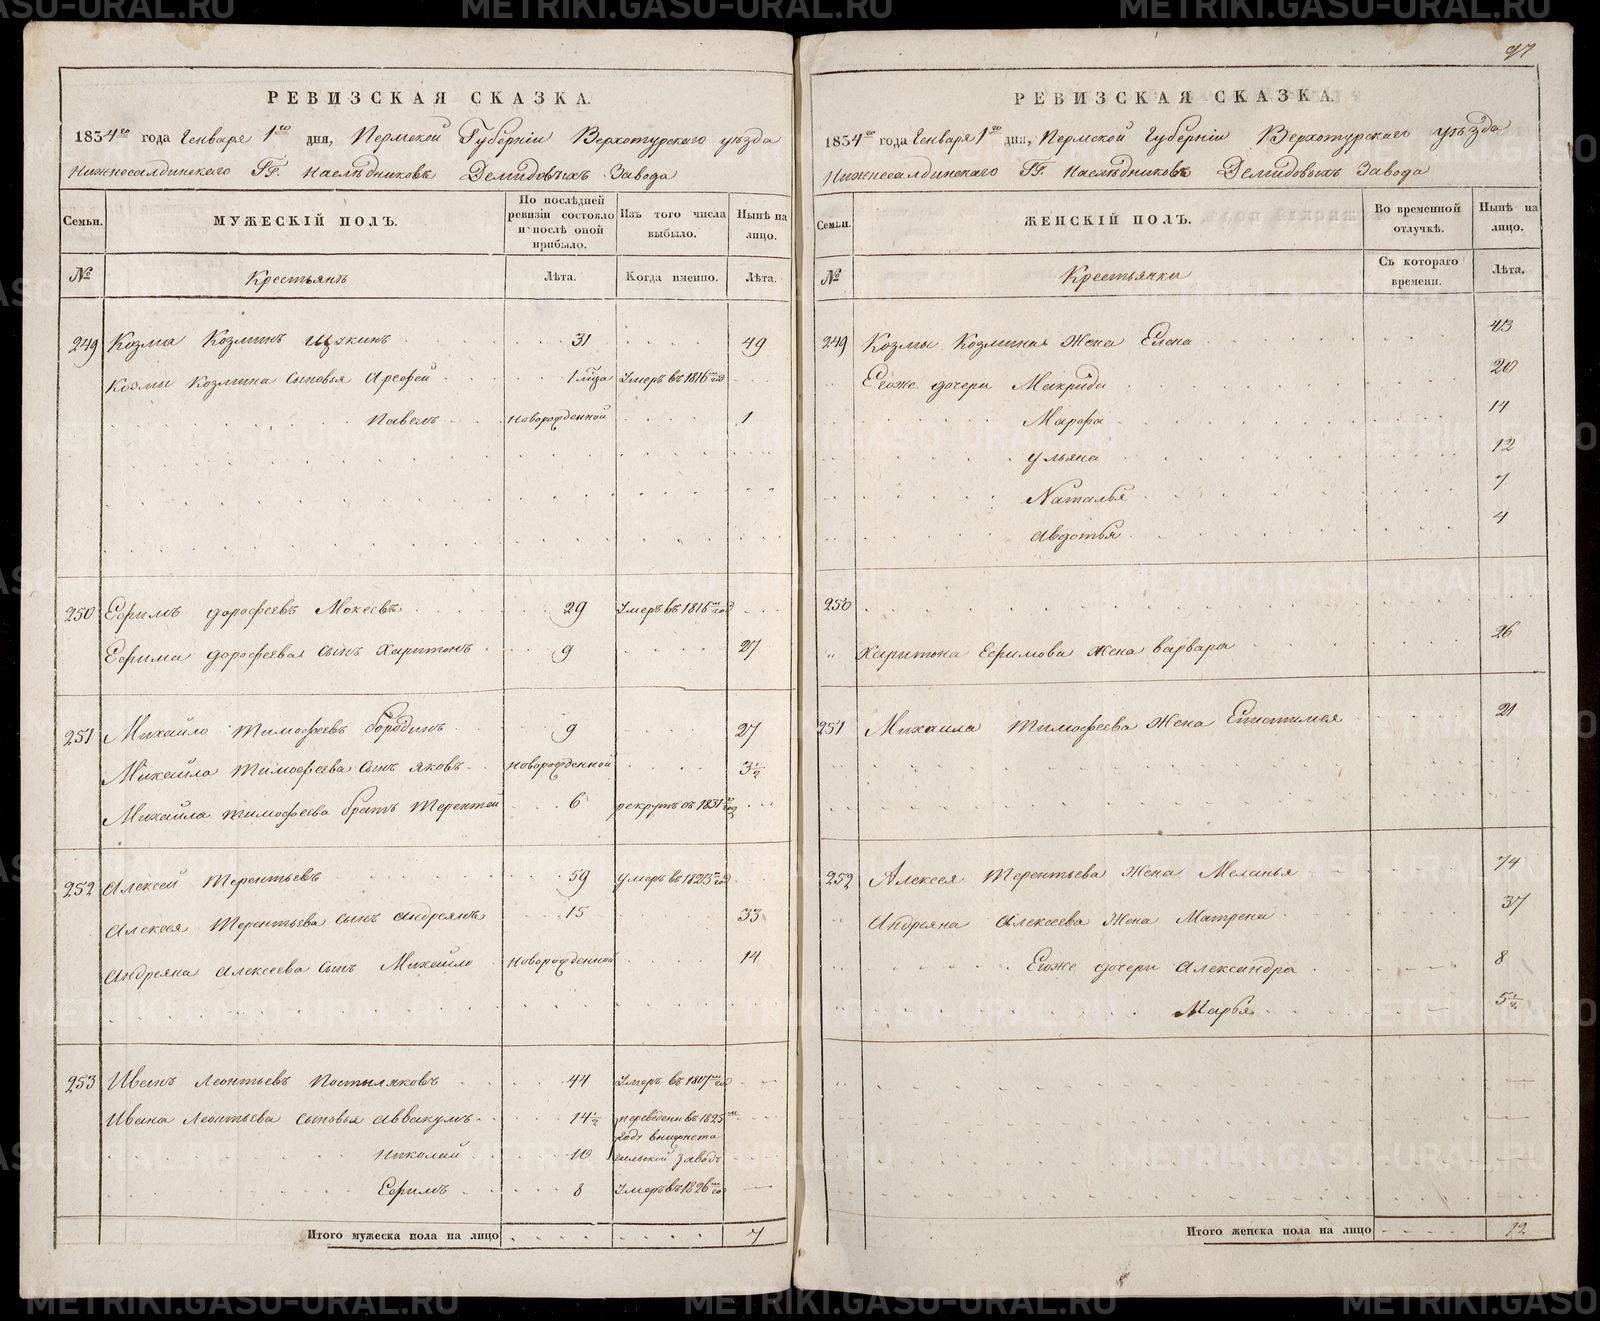 РЕВИЗСКАЯ СКАЗКА.
1834го года Генваря 1го дня, Пермской Губернiи Верхотурскаго уѣзда
Нижнесалдинскаго ГГ. Наслѣдниковъ Демидовыхъ Завода
Семьи. МУЖЕСКІЙ ПОЛЪ. По послѣдней ревизіи состояло и послѣ оной прибыло. Изъ того числа выбыло. Нынѣ на лицо.
№ Крестьянъ Лѣта. Когда именно. Лѣта.
249 Козма Козминъ 31 49
Козмы Козмина сыновья Арефей 1 Умеръ въ 1816 год
Павелъ Новорожденной 1
250 Ефимъ дорофеевъ Мокеевъ 29 Умеръ въ 1816 год
Ефима дорофеева сынъ Харитонъ 9 27
251 Михайло тимофеевъ бородинъ 9 27
Михайла тимофеева сынъ яковъ Новорожденной 3½
Михайла тимофеева братъ терентей 6 рекрутъ въ 1831 год
252 Алексей терентьевъ 59 умеръ въ 1823 год
Алексея терентьева сынъ андреянъ 15 33
андреяна алексеева сынъ Михайло новорожденной 14
253 Иванъ Леонтьевъ Постыляковъ 44 Умеръ въ 1817 год
Ивана Леонтьева сыновья аввакумъ 14½ переведены въ 1825
году внижнета
Николай 10 гильской заводъ
Ефимъ 8 Умеръ въ 1826 год
Итого мужеска пола на лицо 7
97
РЕВИЗСКАЯ СКАЗКА.
1834го года Генваря 1го дня, Пермской Губернiи Верхотурскаго уѣзда
Нижнесалдинскаго ГГ. Наслѣдниковъ Демидовыхъ Завода
Семьи. ЖЕНСКІЙ ПОЛЪ. Во временной отлучкѣ. Нынѣ на лицо.
№ Крестьянки Съ котораго времени. Лѣта.
249 Козмы Козмина Жена Елена 43
Егоже дочери Макрида 20
Марфа 14
ульяна 12
Наталья 7
авдотья 4
250
Харитона Ефимова жена варвара 26
251 Михаила тимофеева Жена 21
252 Алексея терентьева жена Меланья 74
Андреяна алексеева жена Матрена 37
Егоже дочери александра 8
Марья 5½
Итого женска пола на лицо 12
METRIKI.GASO-URAL.RU